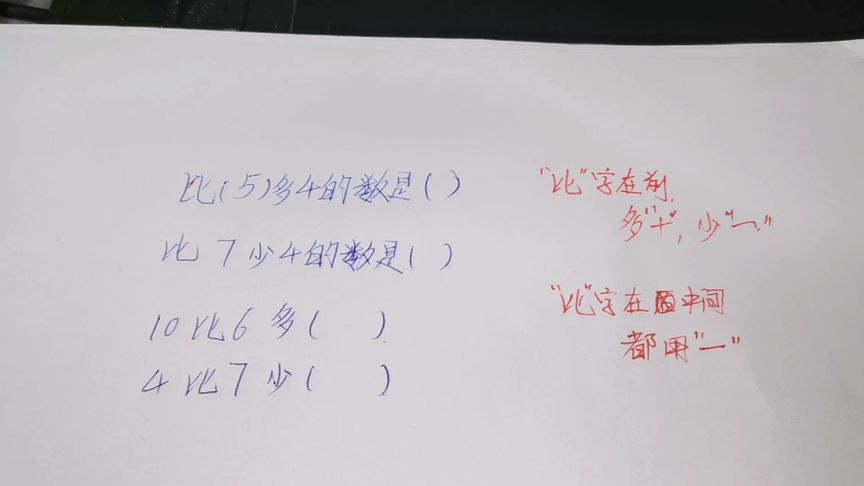 比(5)多4的数是( )
比 7 少4的数是( )
10 比 6 多( )
4 比 7 少( )
"比"字在前,
多"+", 少"一"
"比"字在中间
都用"一"